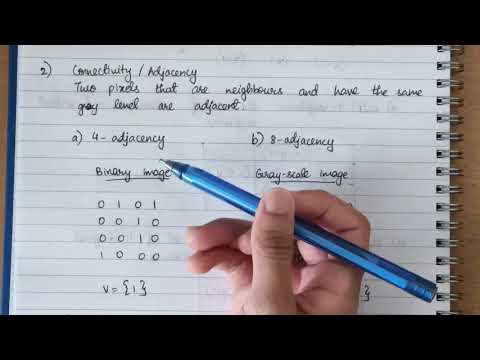 2) Connectivity / Adjacency
Two pixels that are neighbours and have the same
gray level are adjacent.
a) 4-adjacency b) 8-adjacency
Binary image Gray-scale image
0 1 0 1
0 0 1 0
0 0 1 0
1 0 0 0
V = {1} }